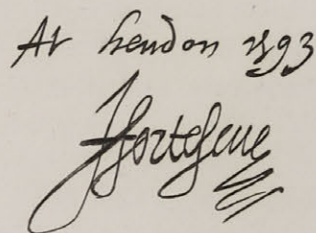 At hendon 1593
J Fortescue